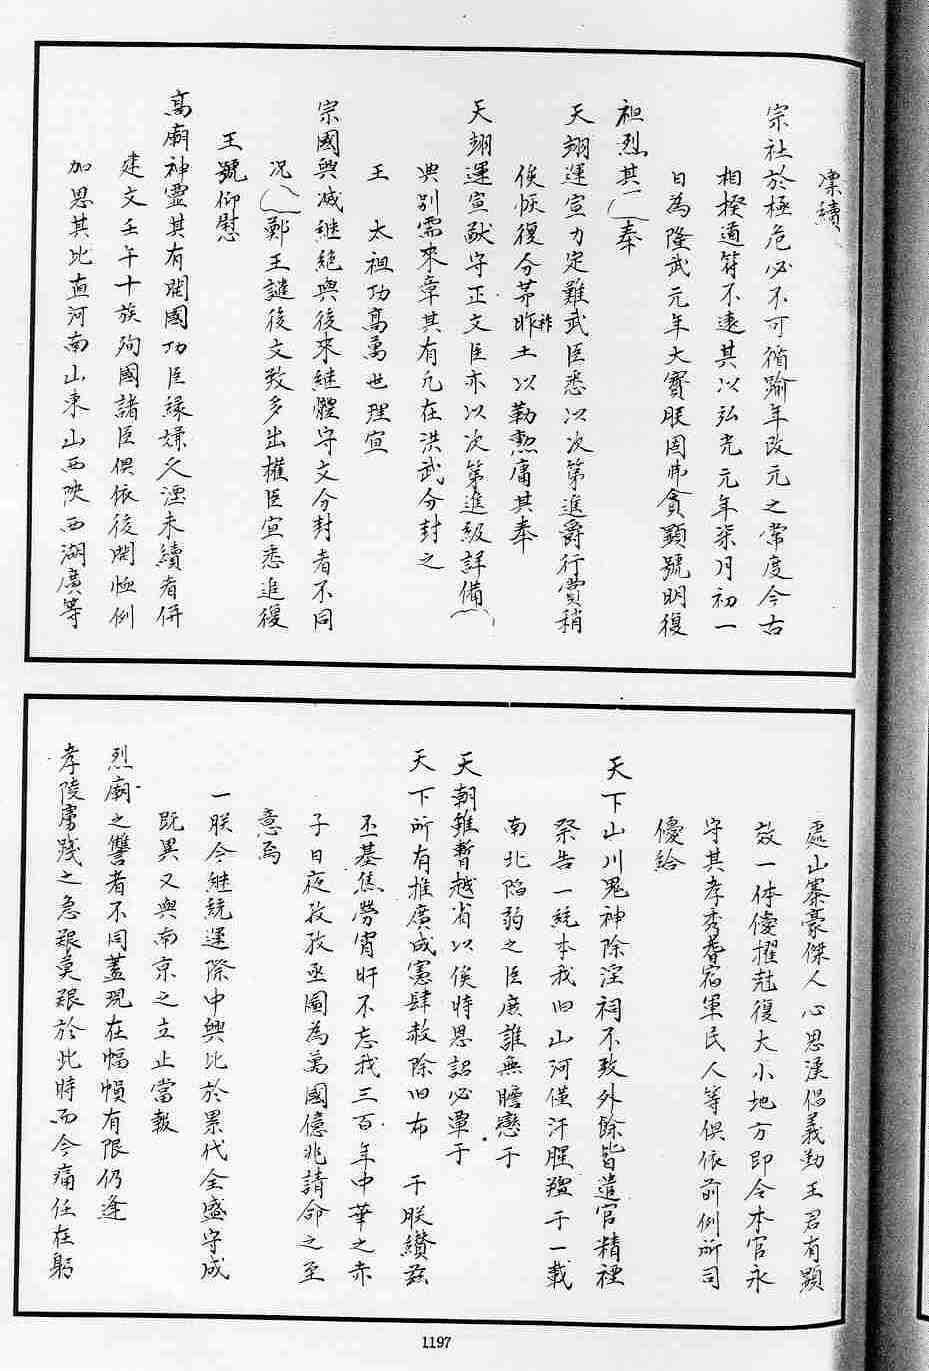 凜續
宗社於極危必不可循踰年改元之常度今古
相揆適符不遠其以弘光元年柒月初一
日為隆武元年大寶朕固弗貪顯號明復
祖烈其一(奉
天翊運宣力定難武臣悉以次第進爵行賞稍
俟恢復分茅昨土以勒勲庸其奉
祚
天翊運宣猷守正文臣亦以次第進級詳備(
典別需來章其有凢在洪武分封之
王 太祖功高萬世理宣
宗國興滅継絕與後來継體守文分封者不同
况(鄭王讉後文致多出權臣宣悉追復
王號仰慰
高廟神靈其有開國功臣緣嫌久湮未續者併
建文壬午十族殉國諸臣俱依後開恤例
加恩其北直河南山東山西陝西湖廣等
處山寨豪傑人心思漢倡義勤王君有顯
效一体優擢尅復大小地方即令本官永
守其孝秀耆宿軍民人等俱依前例所司
優給
天下山川鬼神除淫祠不致外餘皆遣官精禋
祭告一統本我旧山河僅汗腥羶于一載
南北陷弱之臣庶誰無瞻戀于
天朝雖暫越省以俟時恩詔必覃于
天下所有推廣成憲肆赦除旧布 于朕纘茲
丕基焦勞宵旰不忘我三百年中華之赤
子日夜孜孜亟圖為萬國億兆請命之至
意焉
一朕今継統運際中興比於累代全盛守成
既異又與南京之立止當報
烈廟之讐者不同蓋現在幅幀有限仍逢
孝陵虜踐之急艱莫艱於此時而今痛任在躬
1197